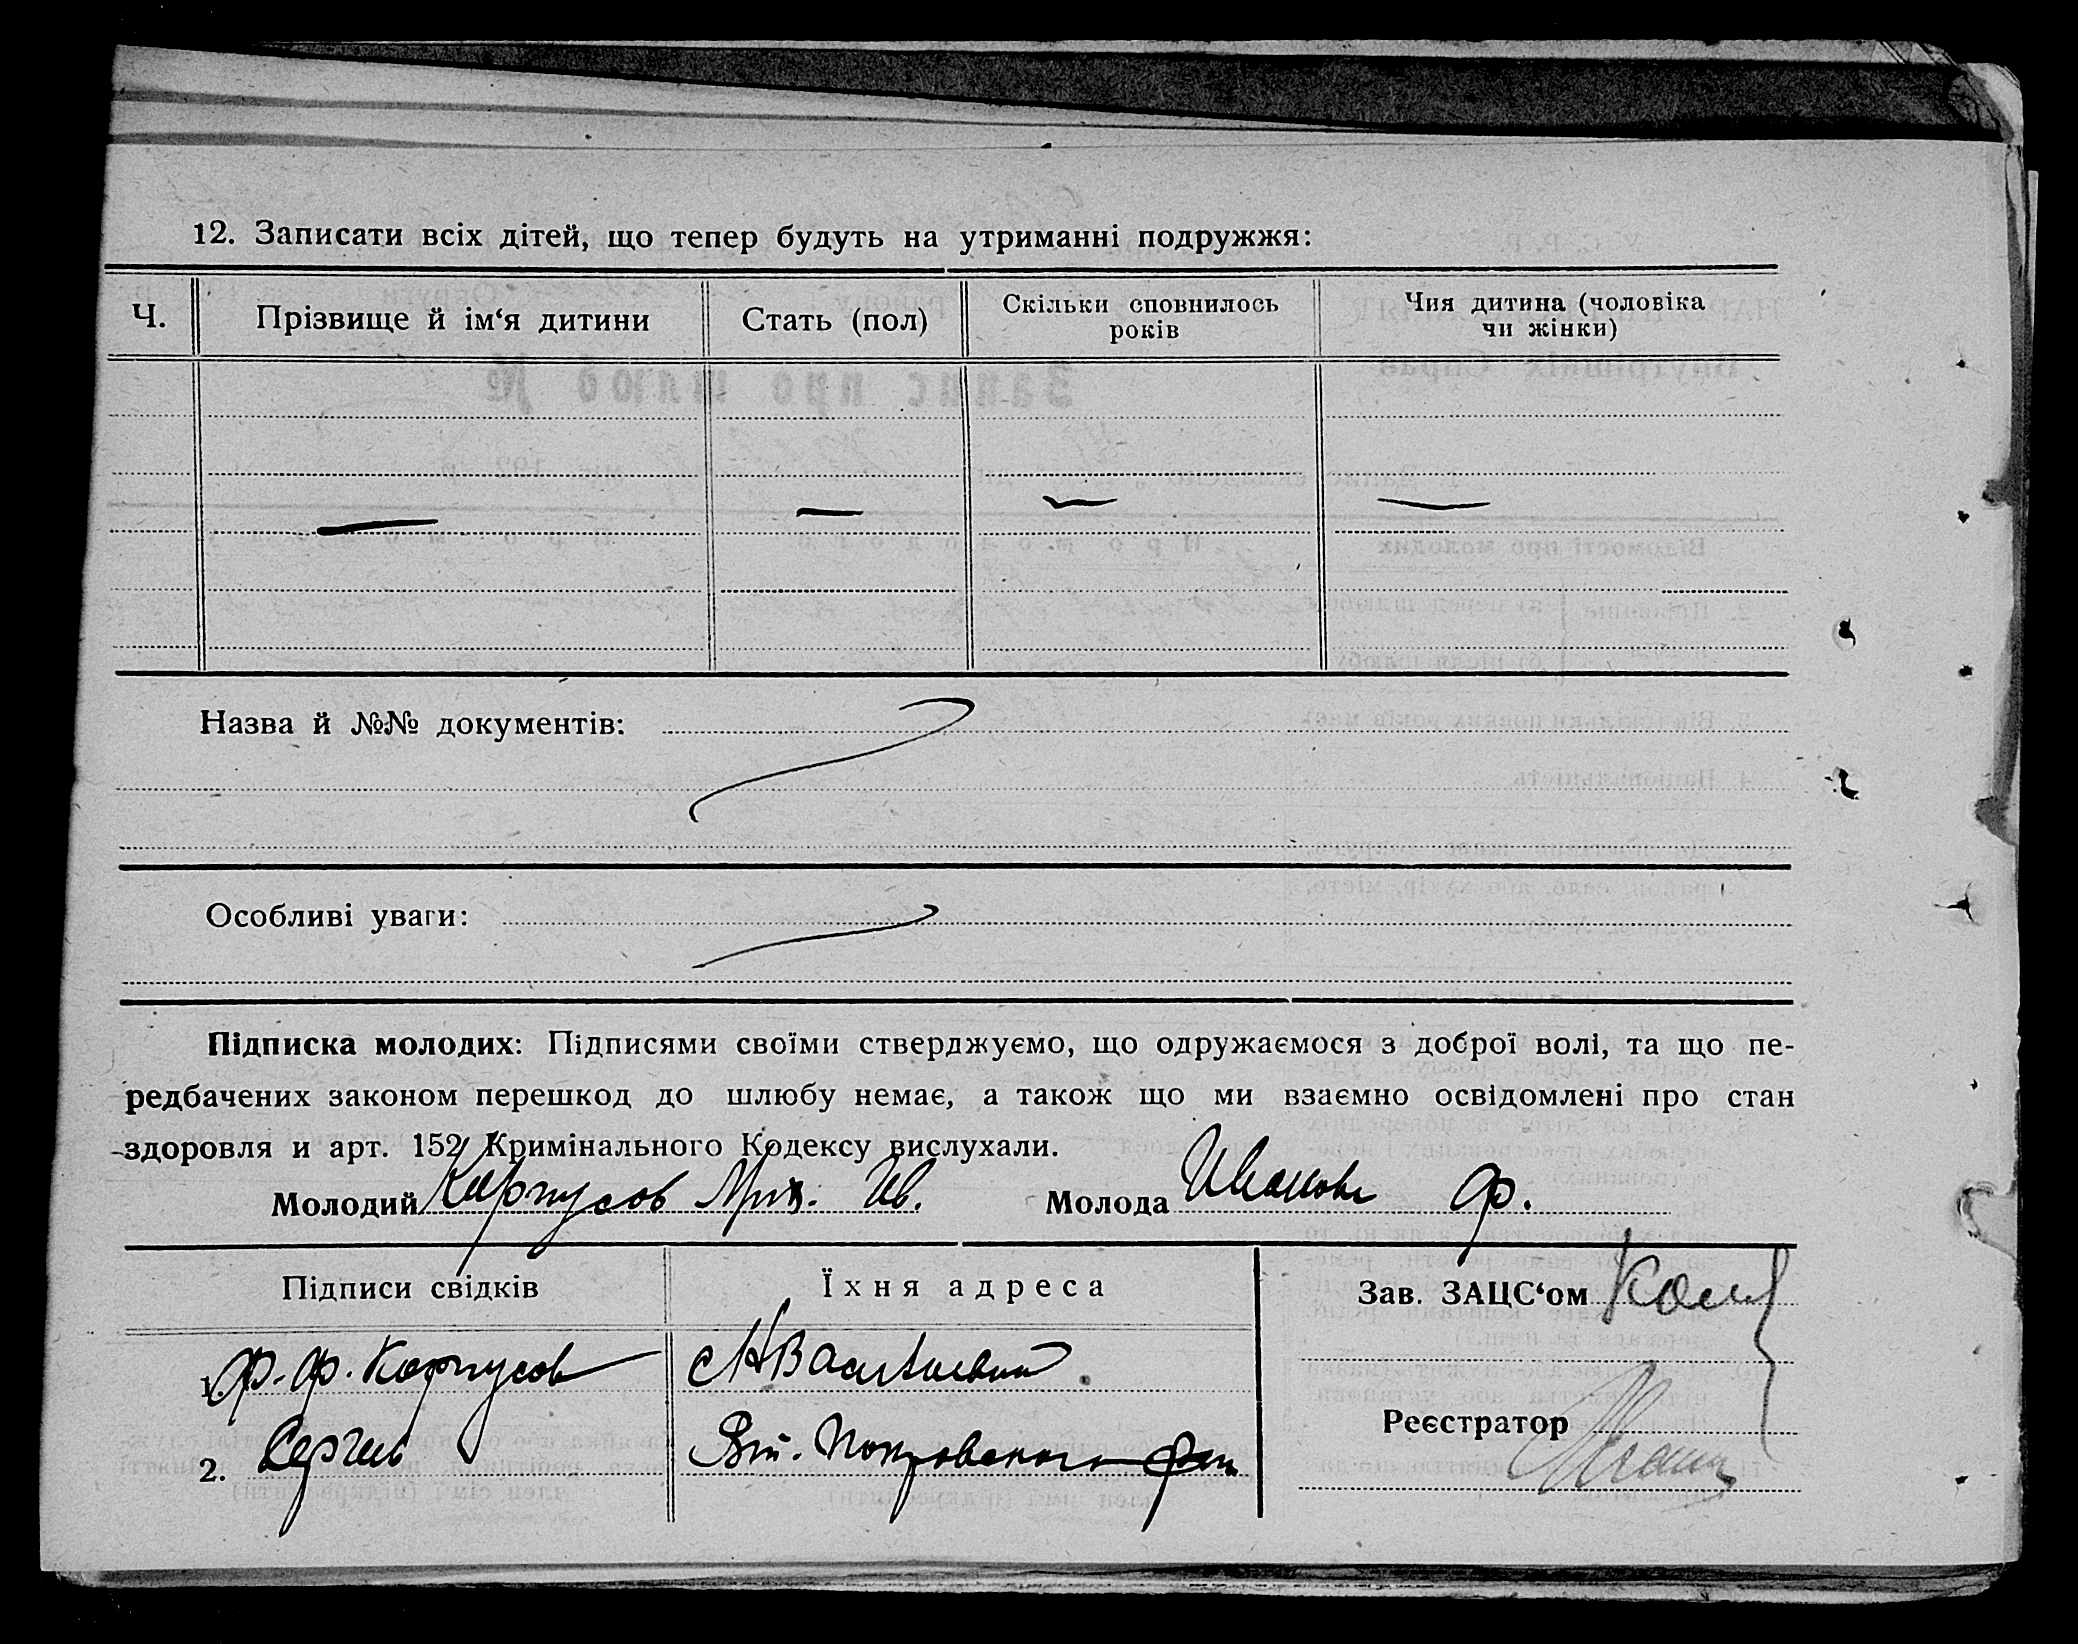 12. Записати всіх дітей, що тепер будуть на утриманні подружжя:
Ч. Прізвище й ім‘я дитини Стать (пол) Скільки сповнилось років Чия дитина (чоловіка чи жінки)
Назва й №№ документів:
Особливі уваги:
Підписка молодих: Підписями своїми стверджуємо, що одружаємося з доброї волі, та що пе-
редбачених законом перешкод до шлюбу немає, а також що ми взаємно освідомлені про стан
здоровля и арт. 152 Кримінального Кодексу вислухали.
Молодий Карпусов Ив. Молода Иванова Ф.
Підписи свідків Їхня адреса Зав. ЗАЦС‘ом
1. Ф. Ф. Карпусов
Реєстратор
2. Сергеев Покровского